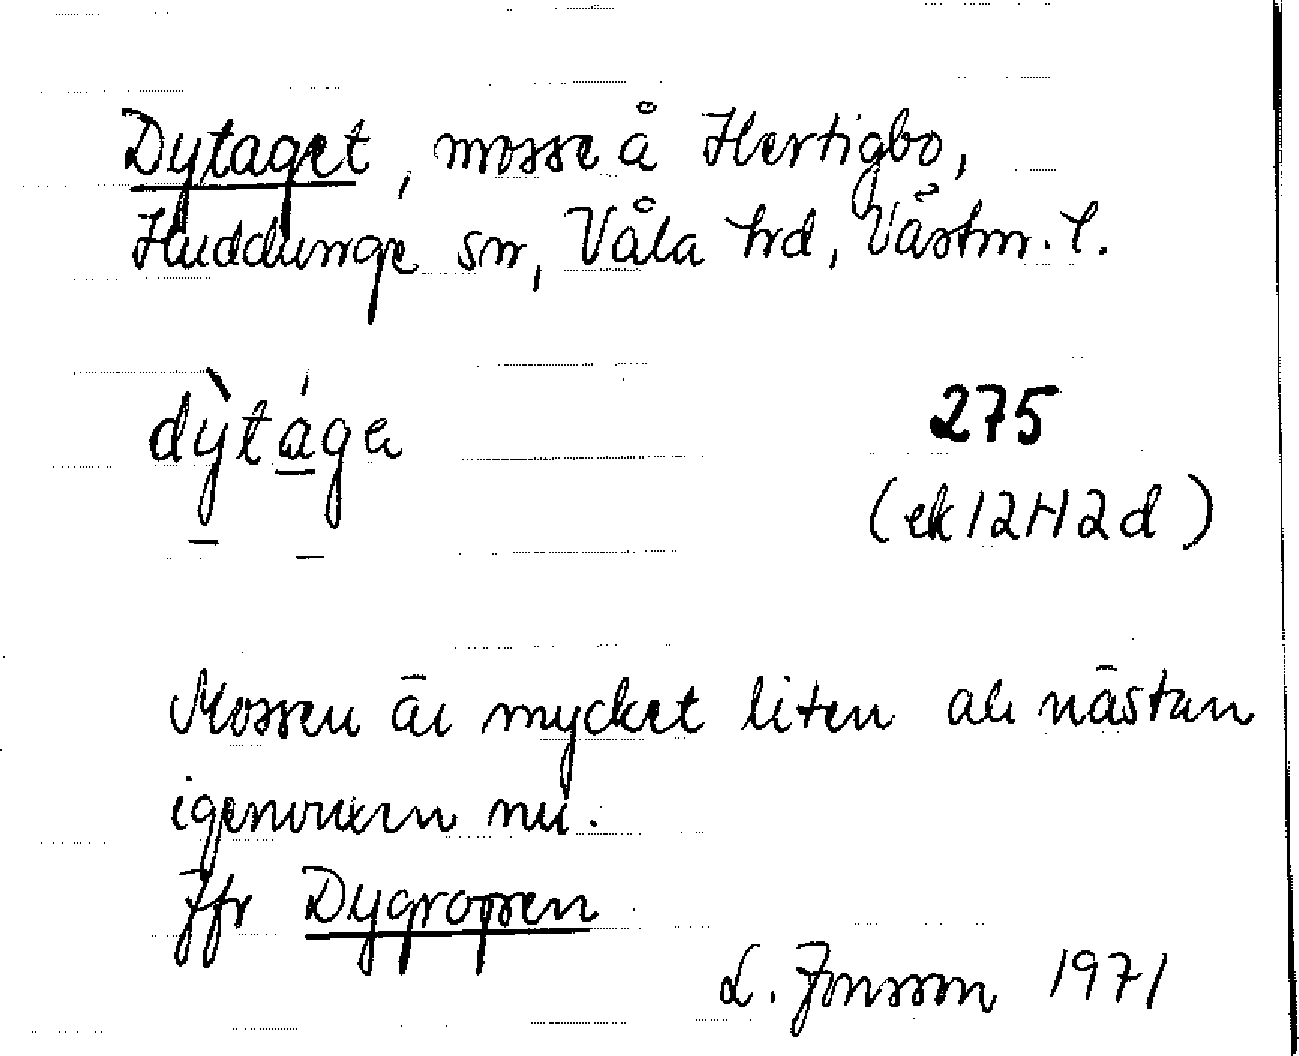 Dytaget, mosse å Hertigbo,
Huddunge sn, Våla hd, Västm. l.
dỳtága
275
(ek 12H2d)
Mossen är mycket liten och nästan
igenvuxen nu.
Jfr Dygropen
L. Jonsson 1971